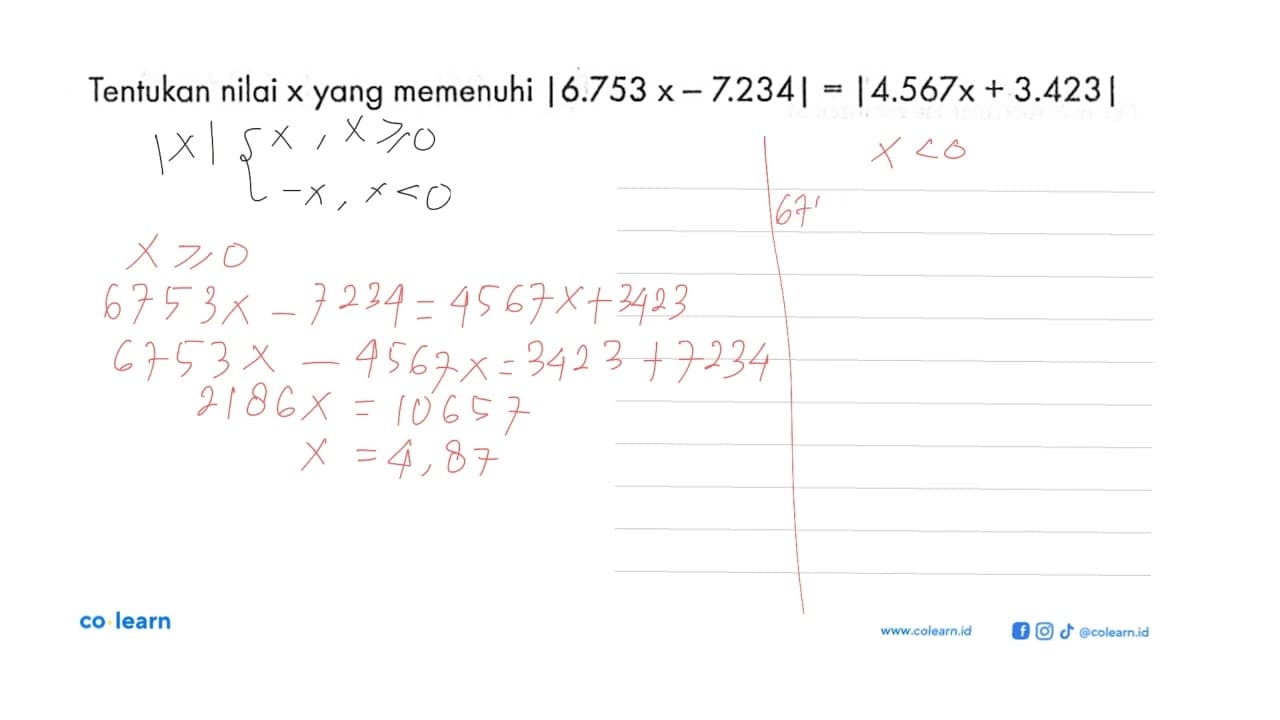 Tentukan nilai x yang memenuhi |6.753 x – 7.234| = |4.567x + 3.423|
|x| { x , x ⩾ 0
-x , x < 0
x ⩾ 0
6753x - 7234 = 4567x + 3423
6753x - 4567x = 3423 + 7234
2186x = 10657
x = 4,87
x < 0
67
co learn
www.colearn.id
@colearn.id